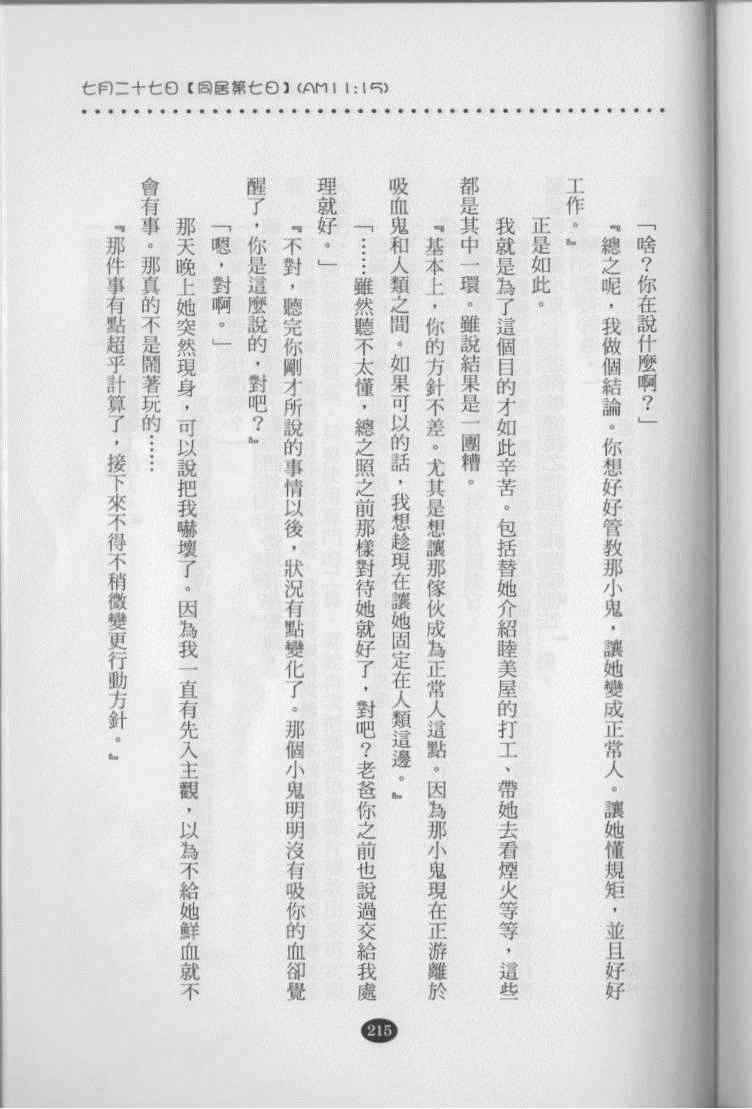 七月二十七日【同居第七日】(AM11:15)
「啥?你在說什麼啊?」
『總之呢,我做個結論。你想好好管教那小鬼,讓她變成正常人。讓她懂規矩,並且好好
工作。』
正是如此。
我就是為了這個目的才如此辛苦。包括替她介紹睦美屋的打工、帶她去看煙火等等,這些
都是其中一環。雖說結果是一團糟。
『基本上,你的方針不差。尤其是想讓那傢伙成為正常人這點。因為那小鬼現在正游離於
吸血鬼和人類之間。如果可以的話,我想趁現在讓她固定在人類這邊。』
「……雖然聽不太懂,總之照之前那樣對待她就好了,對吧?老爸你之前也說過交給我處
理就好。」
『不對,聽完你剛才所說的事情以後,狀況有點變化了。那個小鬼明明沒有吸你的血卻覺
醒了,你是這麼說的,對吧?』
「嗯,對啊。」
那天晚上她突然現身,可以說把我嚇壞了。因為我一直有先入主觀,以為不給她鮮血就不
會有事。那真的不是鬧著玩的……
『那件事有點超乎計算了,接下來不得不稍微變更行動方針。』
215